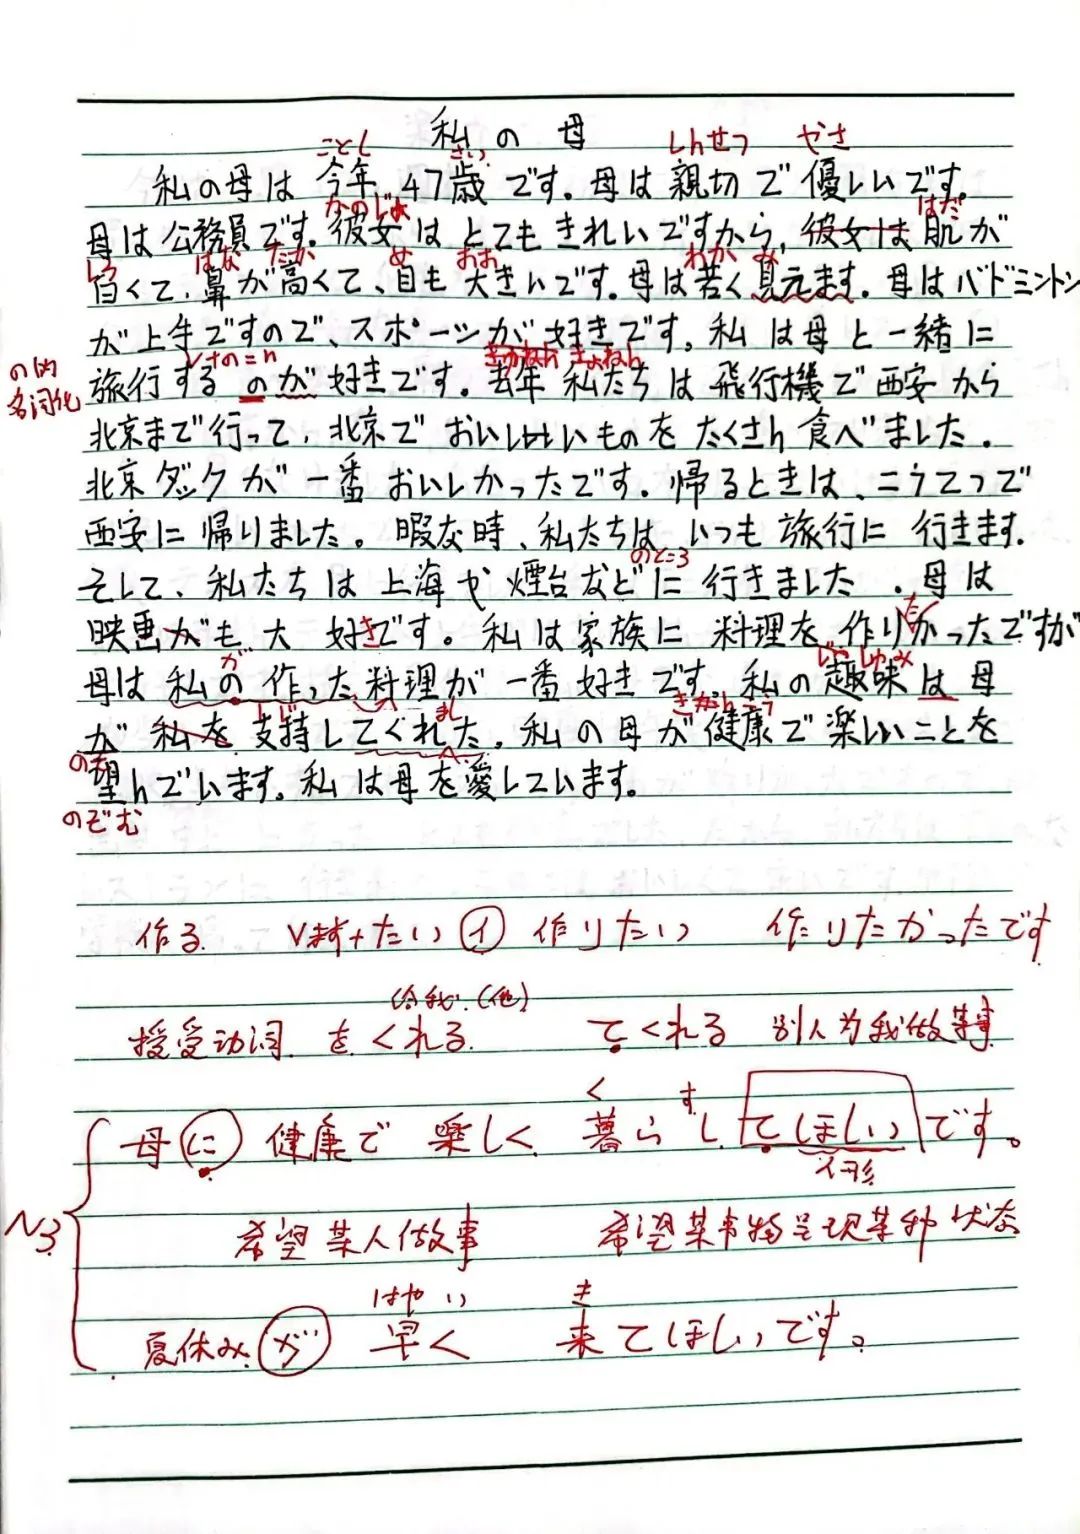 私の母
ことし さい しんせつ やさ
私の母は 今年 47歳 です。母は 親切で 優しいです。
かのじょ はだ
母は公務員です。彼女は とても きれいですから、彼女は 肌が
しろ はな たか め おお わか み
白くて、鼻が高くて、目も 大きいです。母は若く見えます。母はバドミントン
が上手ですので、スポーツが 好きです。私は母と一緒に
の的
名词化
旅行するのが 好きです。去年 私たちは 飛行機で西安から
北京まで行って、北京で おいしいものを たくさん 食べました。
北京ダックが 一番 おいしかったです。帰るときは、こうてつで
西安に 帰りました。暇な時、私たちは いつも 旅行に 行きます。
そして、私たちは 上海や 煙台などに 行きました。母は
映画がも 大 好きです。私は家族に 料理を 作りかったですが
た
が しゅみ
母は 私の 作った料理が 一番 好きです。私の 趣味は 母
まし
が 私を 支持してくれた。私の母が健康で楽しいことを
望んでいます。私は母を愛しています。
のぞむ
作る Vます+たい イ 作りたい 作りたかったです
给我.(他)
授受动词 をくれる てくれる 别人为我做某事
く す
母に 健康で 楽しく 暮らし てほしいです。
イ形
N3
希望某人做事 希望某事物呈现某种状态
はやい き
夏休みが 早く 来てほしいです。